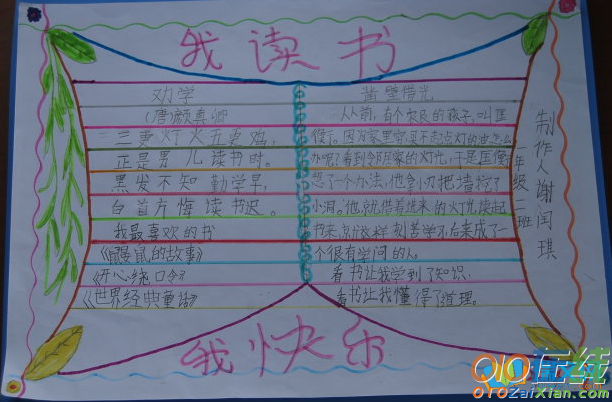 我读书
劝学
(唐颜真卿
三更灯火五更鸡,
正是男儿读书时。
黑发不知勤学早,
白首方悔读书迟。
我最喜欢的书
《鼹鼠的故事》
《开心绕口令》
《世界经典童话》
凿壁借光
从前,有个农民的孩子,叫匡
衡。因为家里穷买不起点灯的油怎么
办呢?看到邻居家的灯光,于是匡衡
想了一个办法,他拿小刀把墙挖了
小洞。他就借着进来的灯光读起
书来,就这样刻苦学习后来成了一
个很有学问的人。
看书让我学到了知识,
看书让我懂得了道理。
一年级二班
制作人谢闰琪
我快乐
010在线
010ZaiXian.com